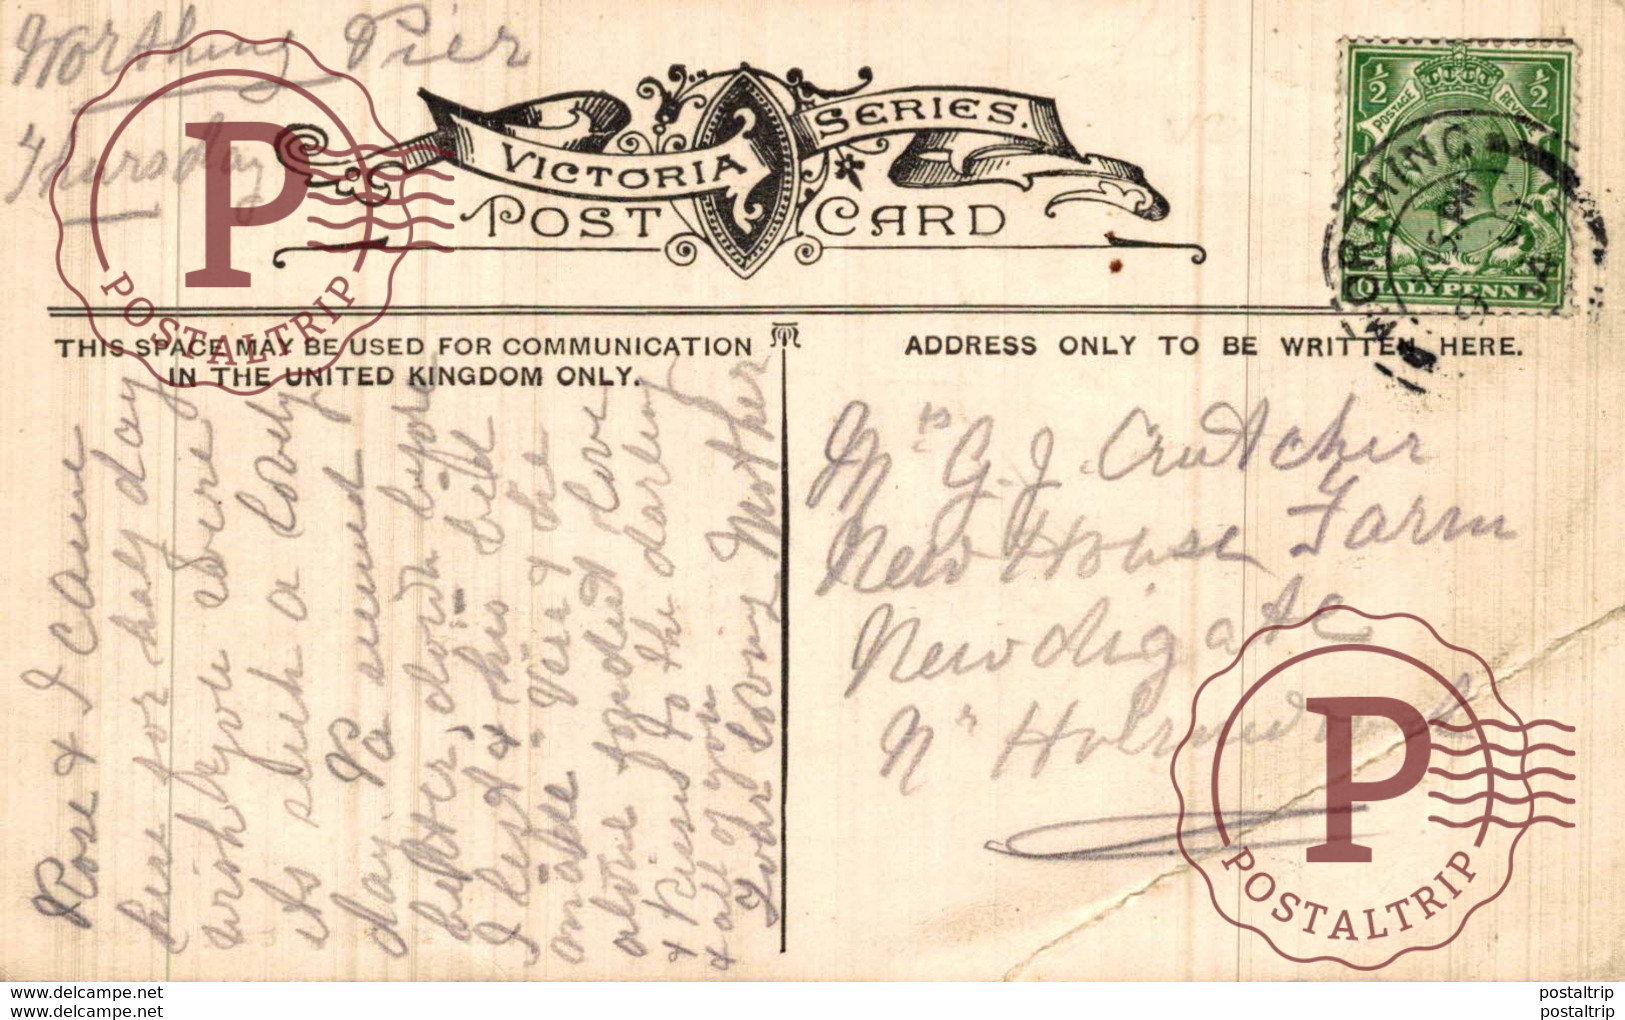 Worthing Pier
Thursday
VICTORIA SERIES.
POST CARD
½ ½
POSTAGE REVENUE
HALFPENNY
WORTHING
THIS SPACE MAY BE USED FOR COMMUNICATION
IN THE UNITED KINGDOM ONLY.
ADDRESS ONLY TO BE WRITTEN HERE.
Rose & I came
here for half day
wish you were
its such a lovely
day. Pa seemed
better, down before
I left & his bed
made. Vera & he
alone fondest love
& kisses to the darling
& all of you
Your loving Mother
Mrs G. J. Crutcher
New House Farm
Newdigate
Nr Holmwood
P
POSTALTRIP
P
POSTALTRIP
www.delcampe.net
www.delcampe.net
postaltrip
postaltrip